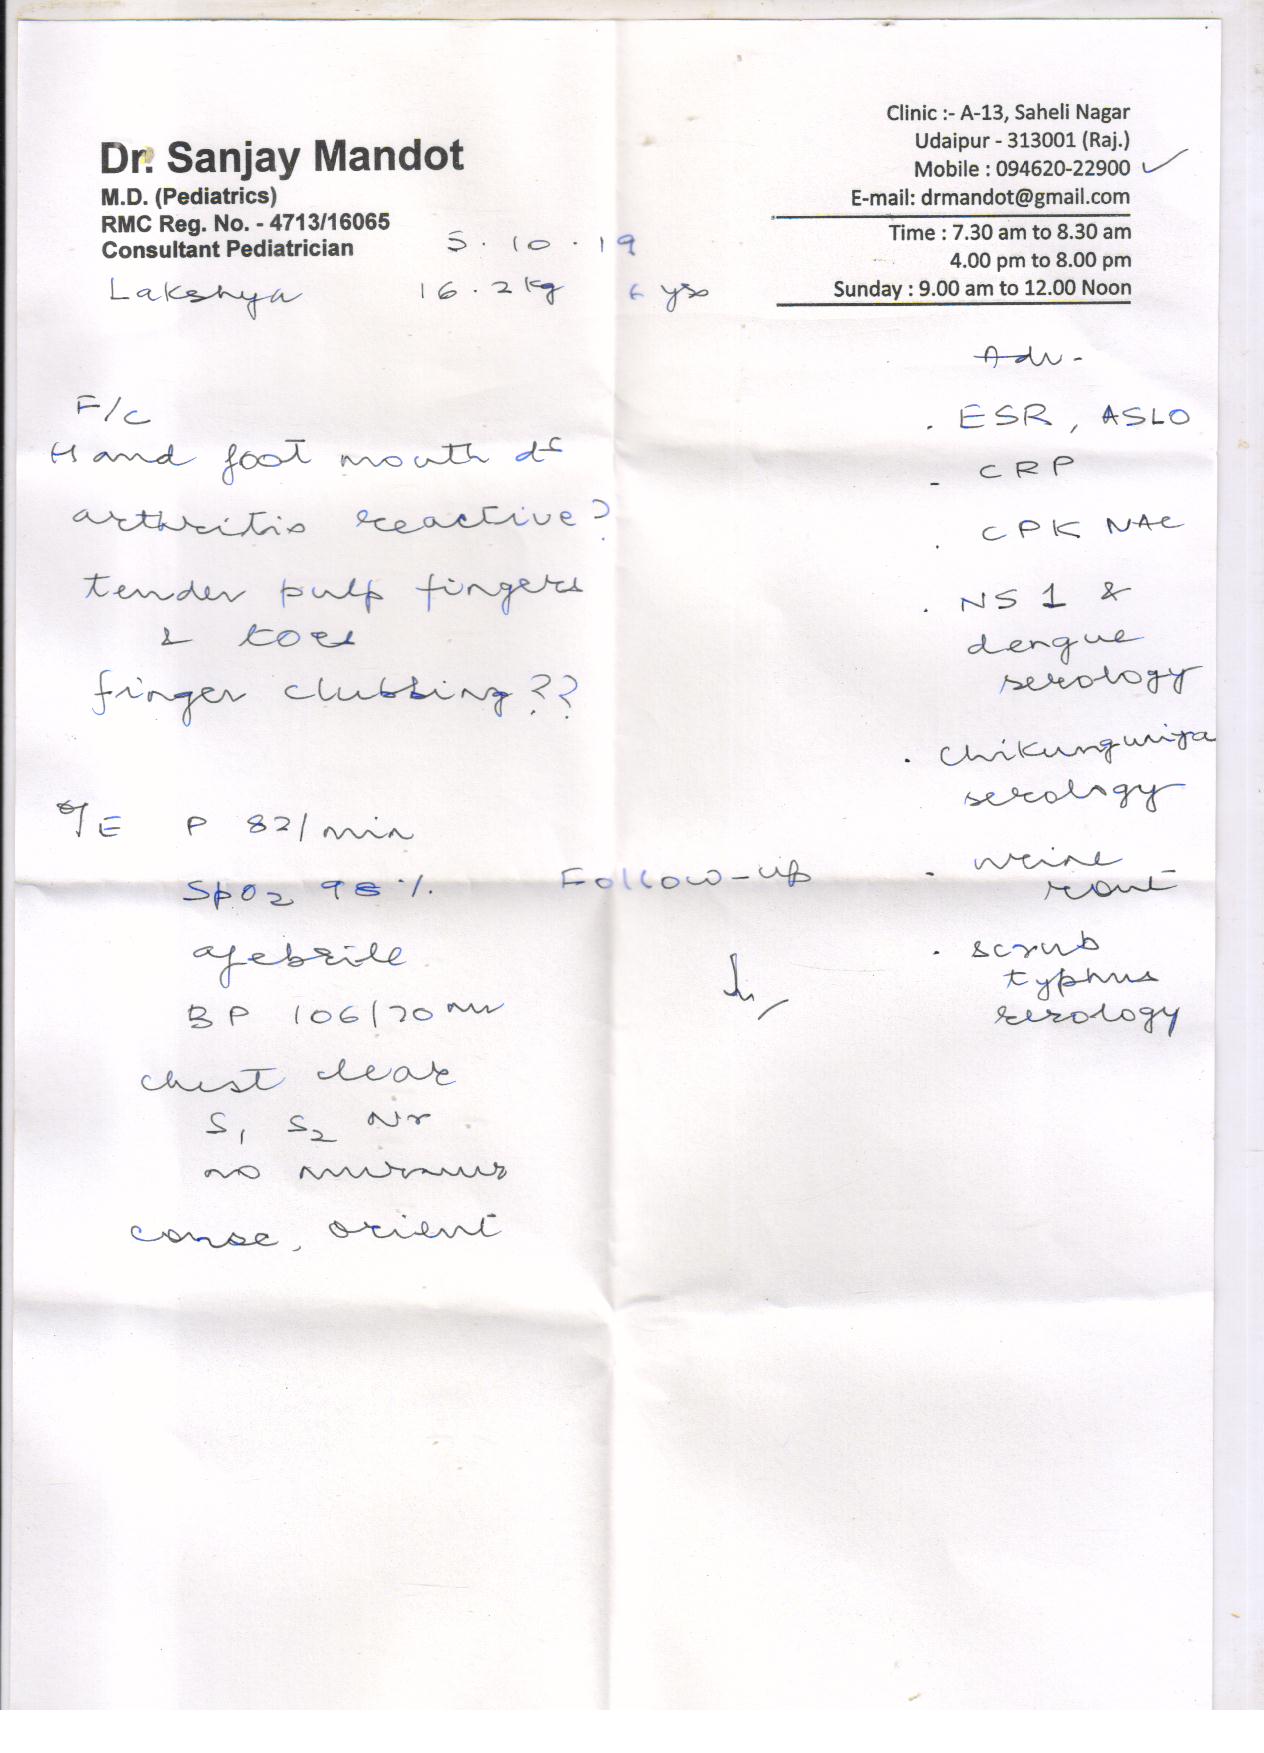 Dr. Sanjay Mandot
M.D. (Pediatrics)
RMC Reg. No. - 4713/16065
Consultant Pediatrician
Clinic :- A-13, Saheli Nagar
Udaipur - 313001 (Raj.)
Mobile : 094620-22900
E-mail: drmandot@gmail.com
Time : 7.30 am to 8.30 am
4.00 pm to 8.00 pm
Sunday : 9.00 am to 12.00 Noon
5.10.19
Lakshya 16.2 kg 6 yrs
F/C
Hand foot mouth ds
arthritis reactive?
tender pulp fingers
& toes
finger clubbing??
O/E P 82/min
SpO2 98%
afebrile
BP 106/70 mm
chest clear
S1 S2 Nr
no murmur
consc, orient
Follow-up
Adv-
. ESR, ASLO
- CRP
. CPK NAC
. NS1 &
dengue
serology
. Chikungunya
serology
. urine
rout
. scrub
typhus
serology